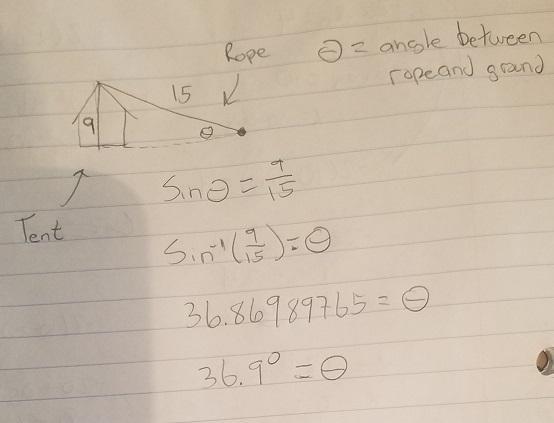 Rope
Θ = angle between
rope and ground
15
9
θ
Tent
Sinθ = 9/15
Sin⁻¹(9/15) = Θ
36.86989765 = Θ
36.9° = Θ